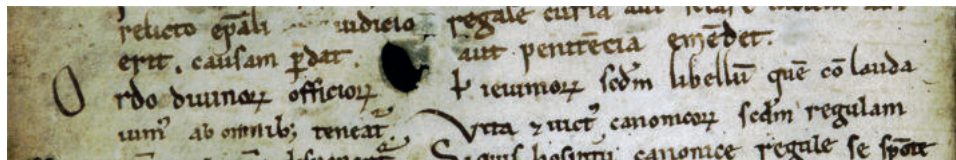 relicto ep̄ali iudicio regale curia aut
erit, causam ꝑdat. aut penitēcia emēdet.
Ordo diuinoꝝ officioꝝ & ieiunioꝝ scdm̄ libellū quē cōlauda
uim᾽ ab omnib; teneat᾽. Vita ⁊ uict᾽ canonicoꝝ scdm̄ regulam
canonice regule se spōte